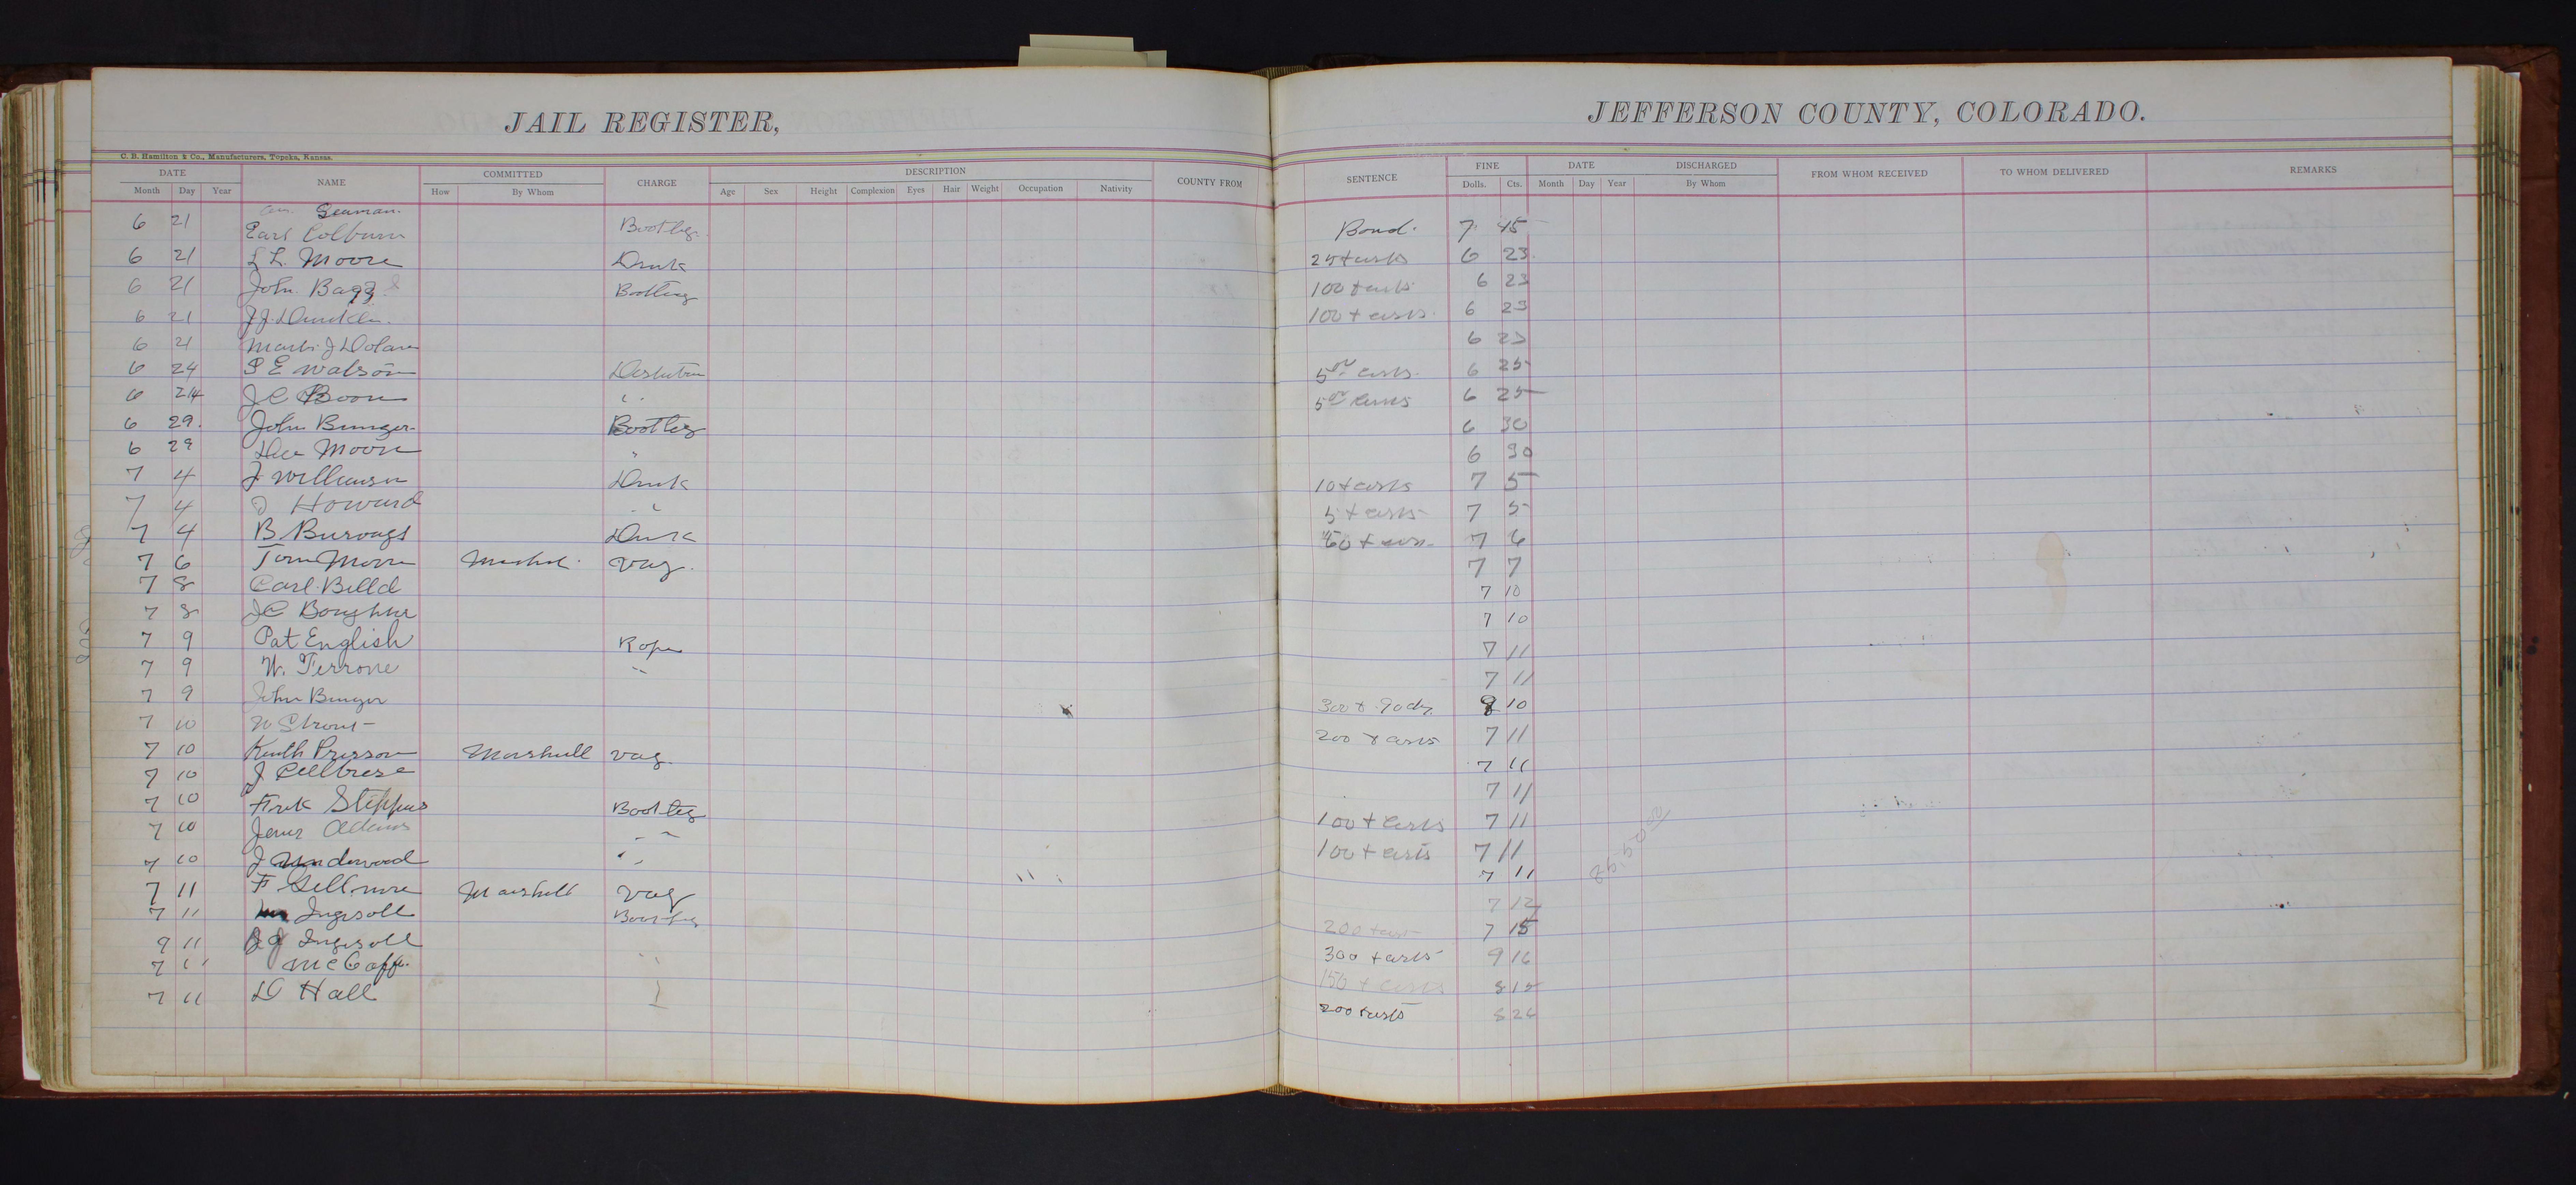 JAIL REGISTER,
JEFFERSON COUNTY, COLORADO.
C. B. Hamilton & Co., Manufacturers, Topeka, Kansas.
DATE NAME COMMITTED CHARGE DESCRIPTION COUNTY FROM SENTENCE FINE DATE DISCHARGED FROM WHOM RECEIVED TO WHOM DELIVERED REMARKS
Month Day Year How By Whom Age Sex Height Complexion Eyes Hair Weight Occupation Nativity Dolls. Cts. Month Day Year By Whom
Seaman.
6 21 Earl Colburn Bootleg. Bond. 7 15
6 21 L L. Moore Drunk 25 + costs 6 23
6 21 John Bagg Bootleg 100 + costs 6 23
6 21 J J. 100 + costs. 6 23
6 21 J Dolan 6 23
6 24 P E Watson 5 00 costs. 6 25
6 24 J C Boone " 5 00 costs 6 25
6 29. John Bunger Bootleg 6 30
6 29 Dee Moore " 6 30
7 4 J Williamson Drunk 10 + costs 7 5
7 4 J Howard " 5 + costs 7 5
7 4 B. Burougs Drunk 50 + cos 7 6
7 6 Tom Moore Marshal. Vag. 7 7
7 8 Carl Billd 7 10
7 8 JC 7 10
7 9 Pat English Rape 7 11
7 9 W. Terrone " 7 11
7 9 John Bunger 300 + 90 dy 8 10
7 10 W Strout 200 + costs 7 11
7 10 Marshall Vag. 7 11
7 10 J 7 11
7 10 Frnk Steppes Bootleg 100 + costs 7 11
7 10 Adams " 100 + costs 7 11
7 10 J Underwood " 7 11
7 11 F Gillmore Marshall Vag 7 12
7 11 Ingersoll Bootleg 200 + cost 7 15
9 11 J Ingersoll 300 + costs 9 16
7 11 " 150 + costs 8 15
7 11 D Hall 200 + costs 8 26